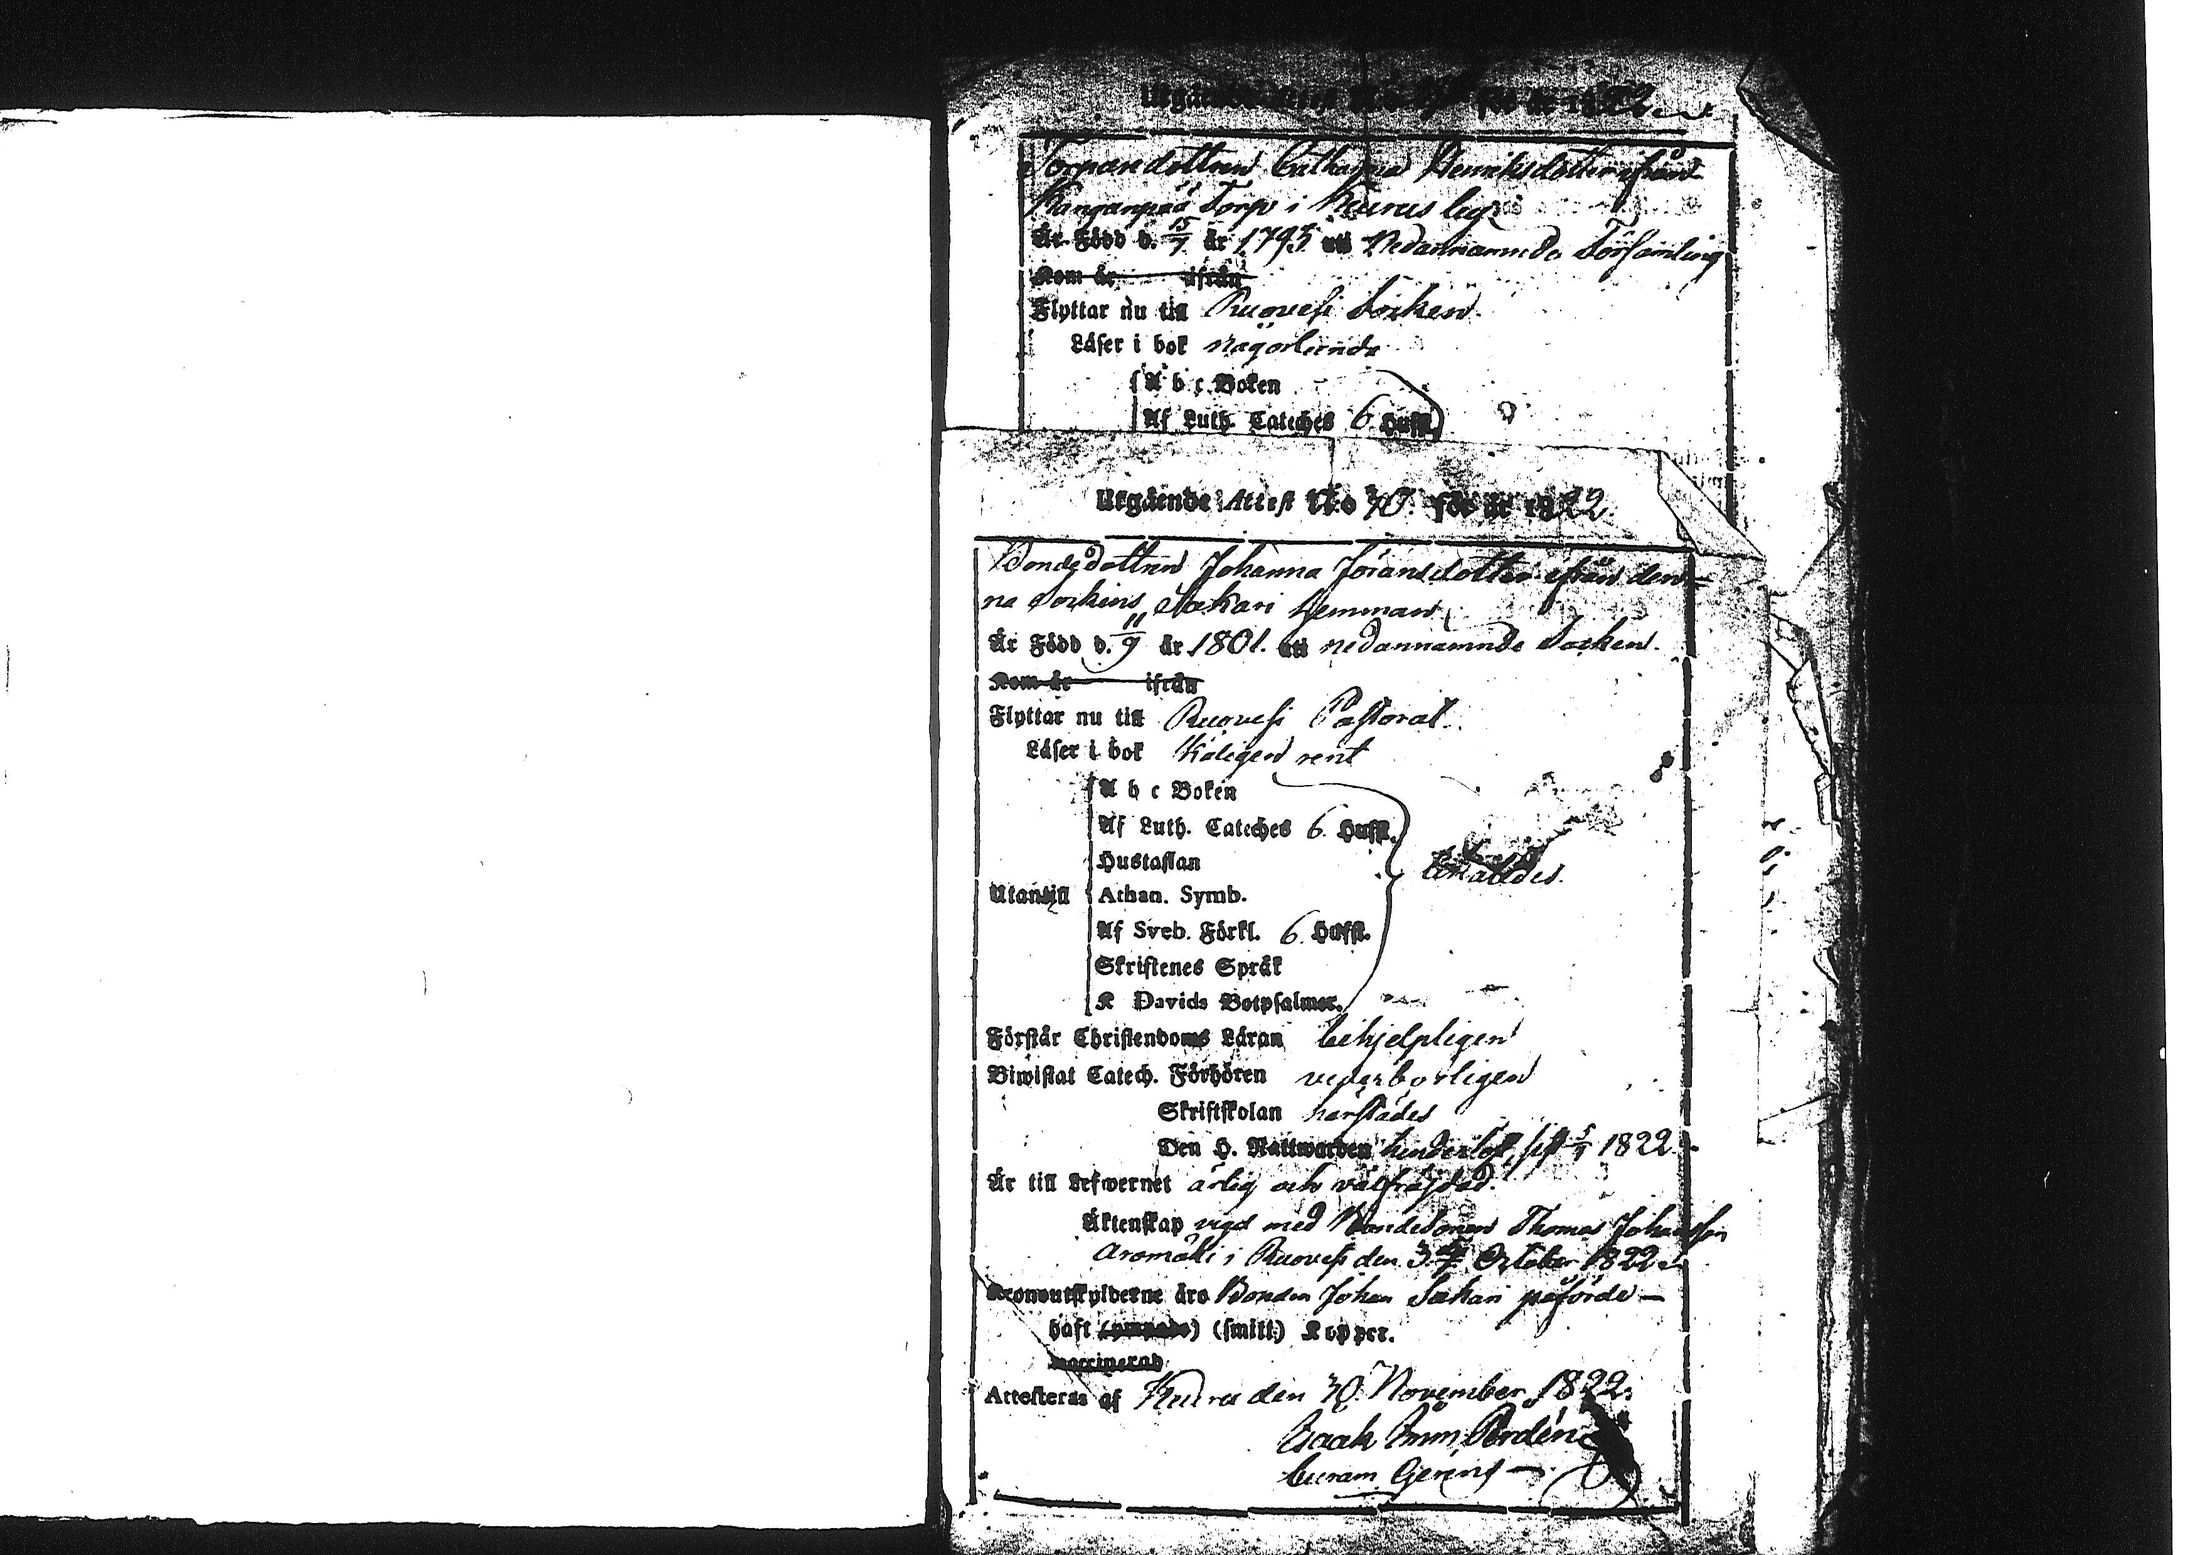 Utgående Attest N:o för år 1822.
Torparedottren Catharina Henriksdotter ifrån
Kanganpää Torp i Keurus by.
Är Född d. 15/7 år 1795 uti Nedannamnde Församling
Kom år ifrån
Flyttar nu till Ruovesi Socken.
Läser i bok någorlunda
A b c Boken
Af Luth. Cateches 6. Hufst.
Utgående Attest N:o 70. för år 1822.
Bondedottren Johanna Jöransdotter ifrån den-
na Sockens hemman
Är Född d. 11/9 år 1801. uti nedannamnde Socken.
Kom år ifrån
Flyttar nu till Ruovesi Pastorat.
Läser i bok rent
A b c Boken
Af Luth. Cateches 6. Hufst.
Hustaflan
Utantill Athan. Symb.
Af Sveb. Förkl. 6. Hufst.
Skriftenes Språk
K Davids Botpsalmer.
Förstår Christendoms Läran behjelpligen
Biwistat Catech. Förhören vederbörligen
Skriftskolan härstädes
Den H. Nattwarden sist 1822
Är till Lefwernet ärlig och välfrejdad.
Äktenskap vigd med Bondesonen Thomas Johansson
Aromäki i Ruovesi den October 1822
Kronoutskylderne äro Bonden Johan påförde —
haft (ympade) (smitt.) Kopper.
waccinerad
Attesteras af Keuru den 30. November 1822.
Isaak Imm. Bordén
Curam Gerens —